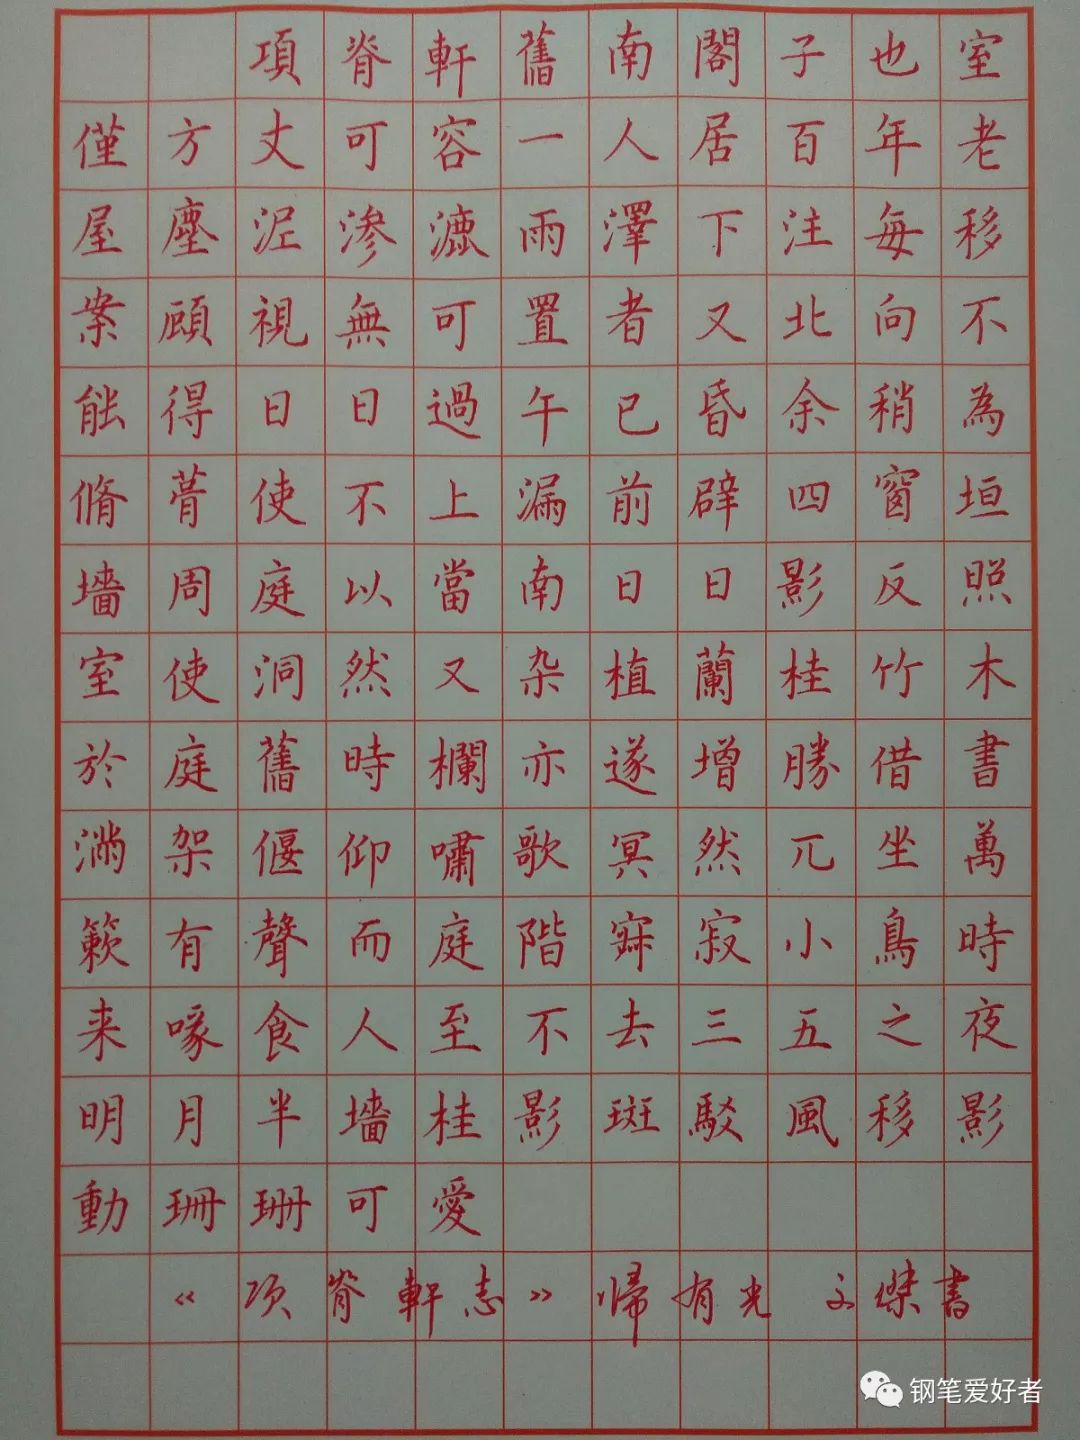 項脊軒舊南閣子也室
僅方丈可容一人居百年老
屋塵泥滲漉雨澤下注每移
案顧視無可置者又北向不
能得日日過午已昏余稍為
脩葺使不上漏前辟四窗垣
墻周庭以當南日日影反照
室使洞然又杂植蘭桂竹木
於庭舊時欄亦遂增勝借書
滿架偃仰嘯歌冥然兀坐萬
籁有聲而庭階寂寂小鳥時
来啄食人至不去三五之夜
明月半墻桂影斑駁風移影
動珊珊可愛
《项脊軒志》歸有光 文傑書
钢笔爱好者